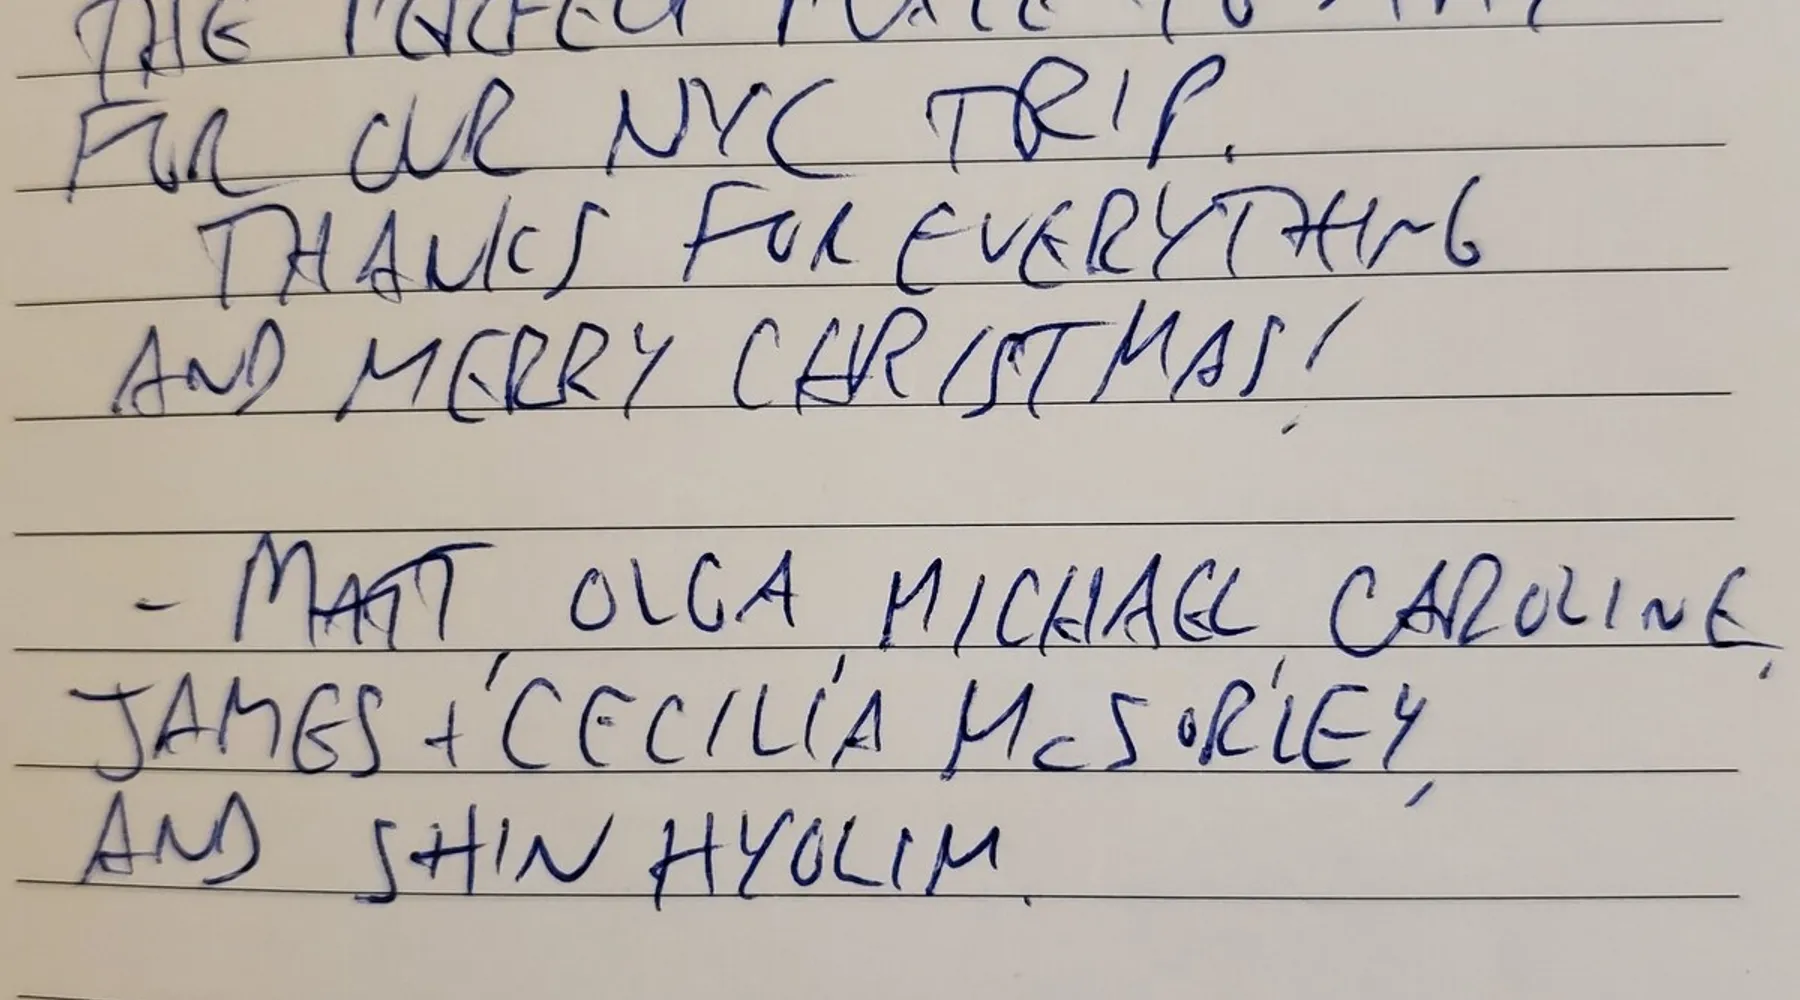 THE PERFECT PLACE TO STAY
FOR OUR NYC TRIP.
THANKS FOR EVERYTHING
AND MERRY CHRISTMAS!
- MATT, OLGA, MICHAEL, CAROLINE,
JAMES + CECILIA McSORLEY,
AND SHIN HYOLIM.